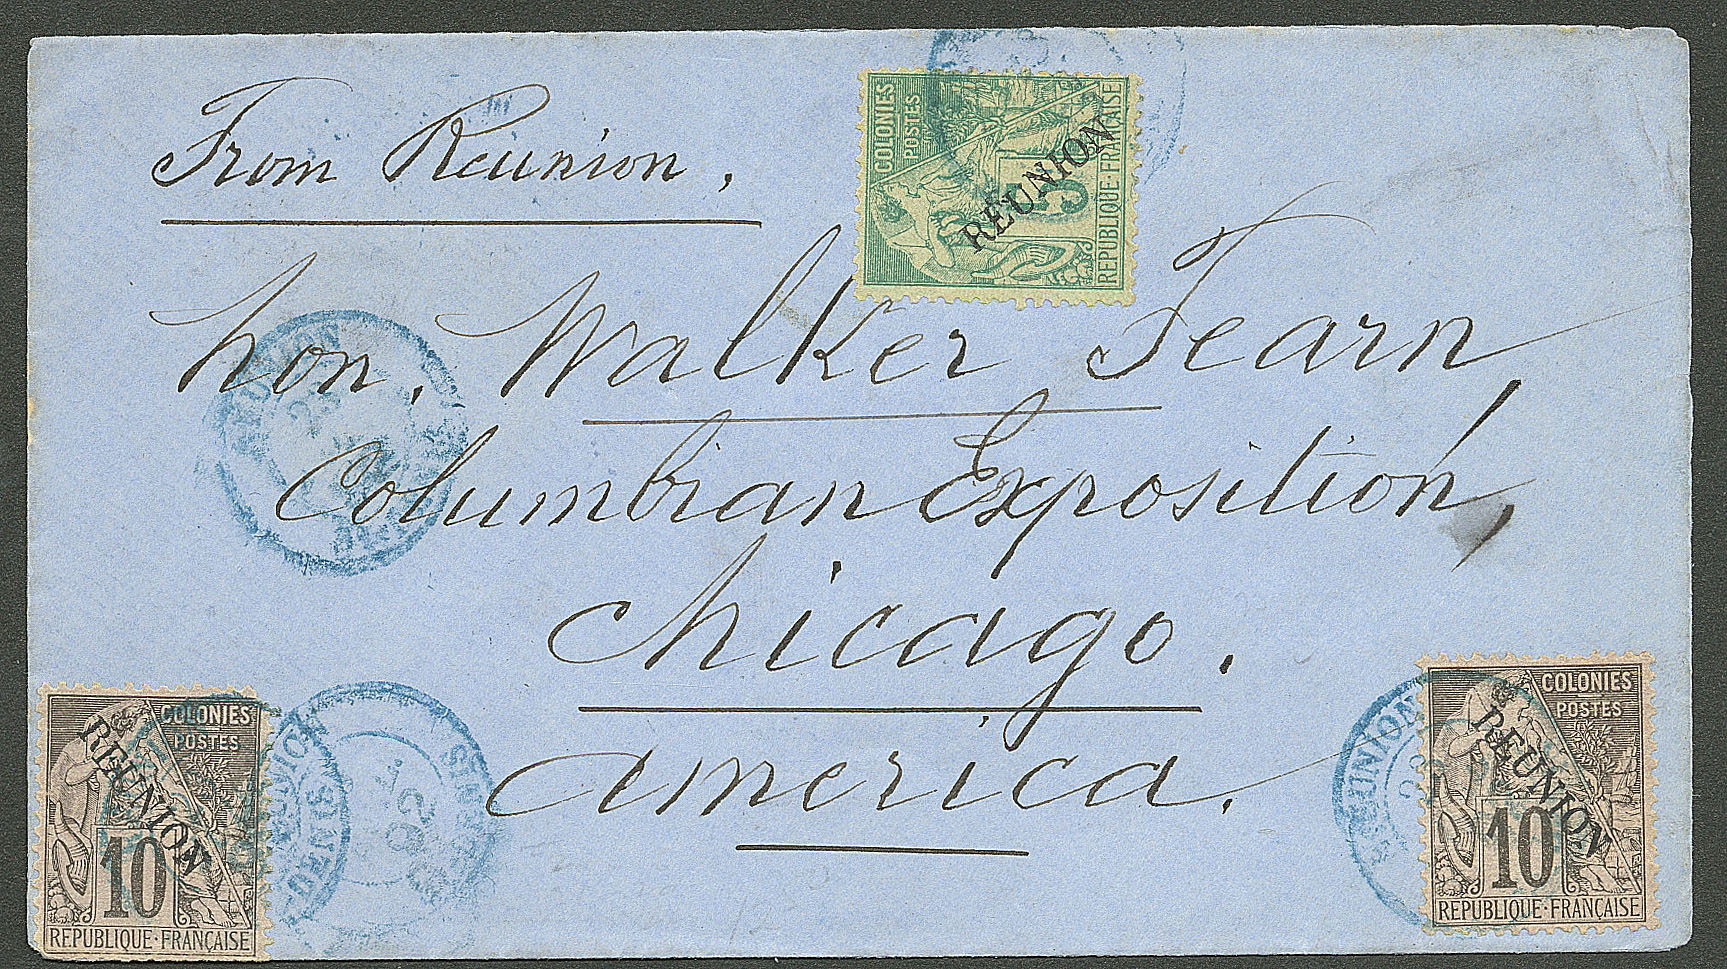 From Reunion,
Hon. Walker Fearn
Columbian Exposition,
Chicago.
America.
COLONIES
POSTES
5
RÉUNION
REPUBLIQUE·FRANÇAISE
REUNION
COLONIES
POSTES
REUNION
10
REPUBLIQUE·FRANÇAISE
REUNION
ST DENIS
COLONIES
POSTES
REUNION
10
REPUBLIQUE·FRANÇAISE
REUNION